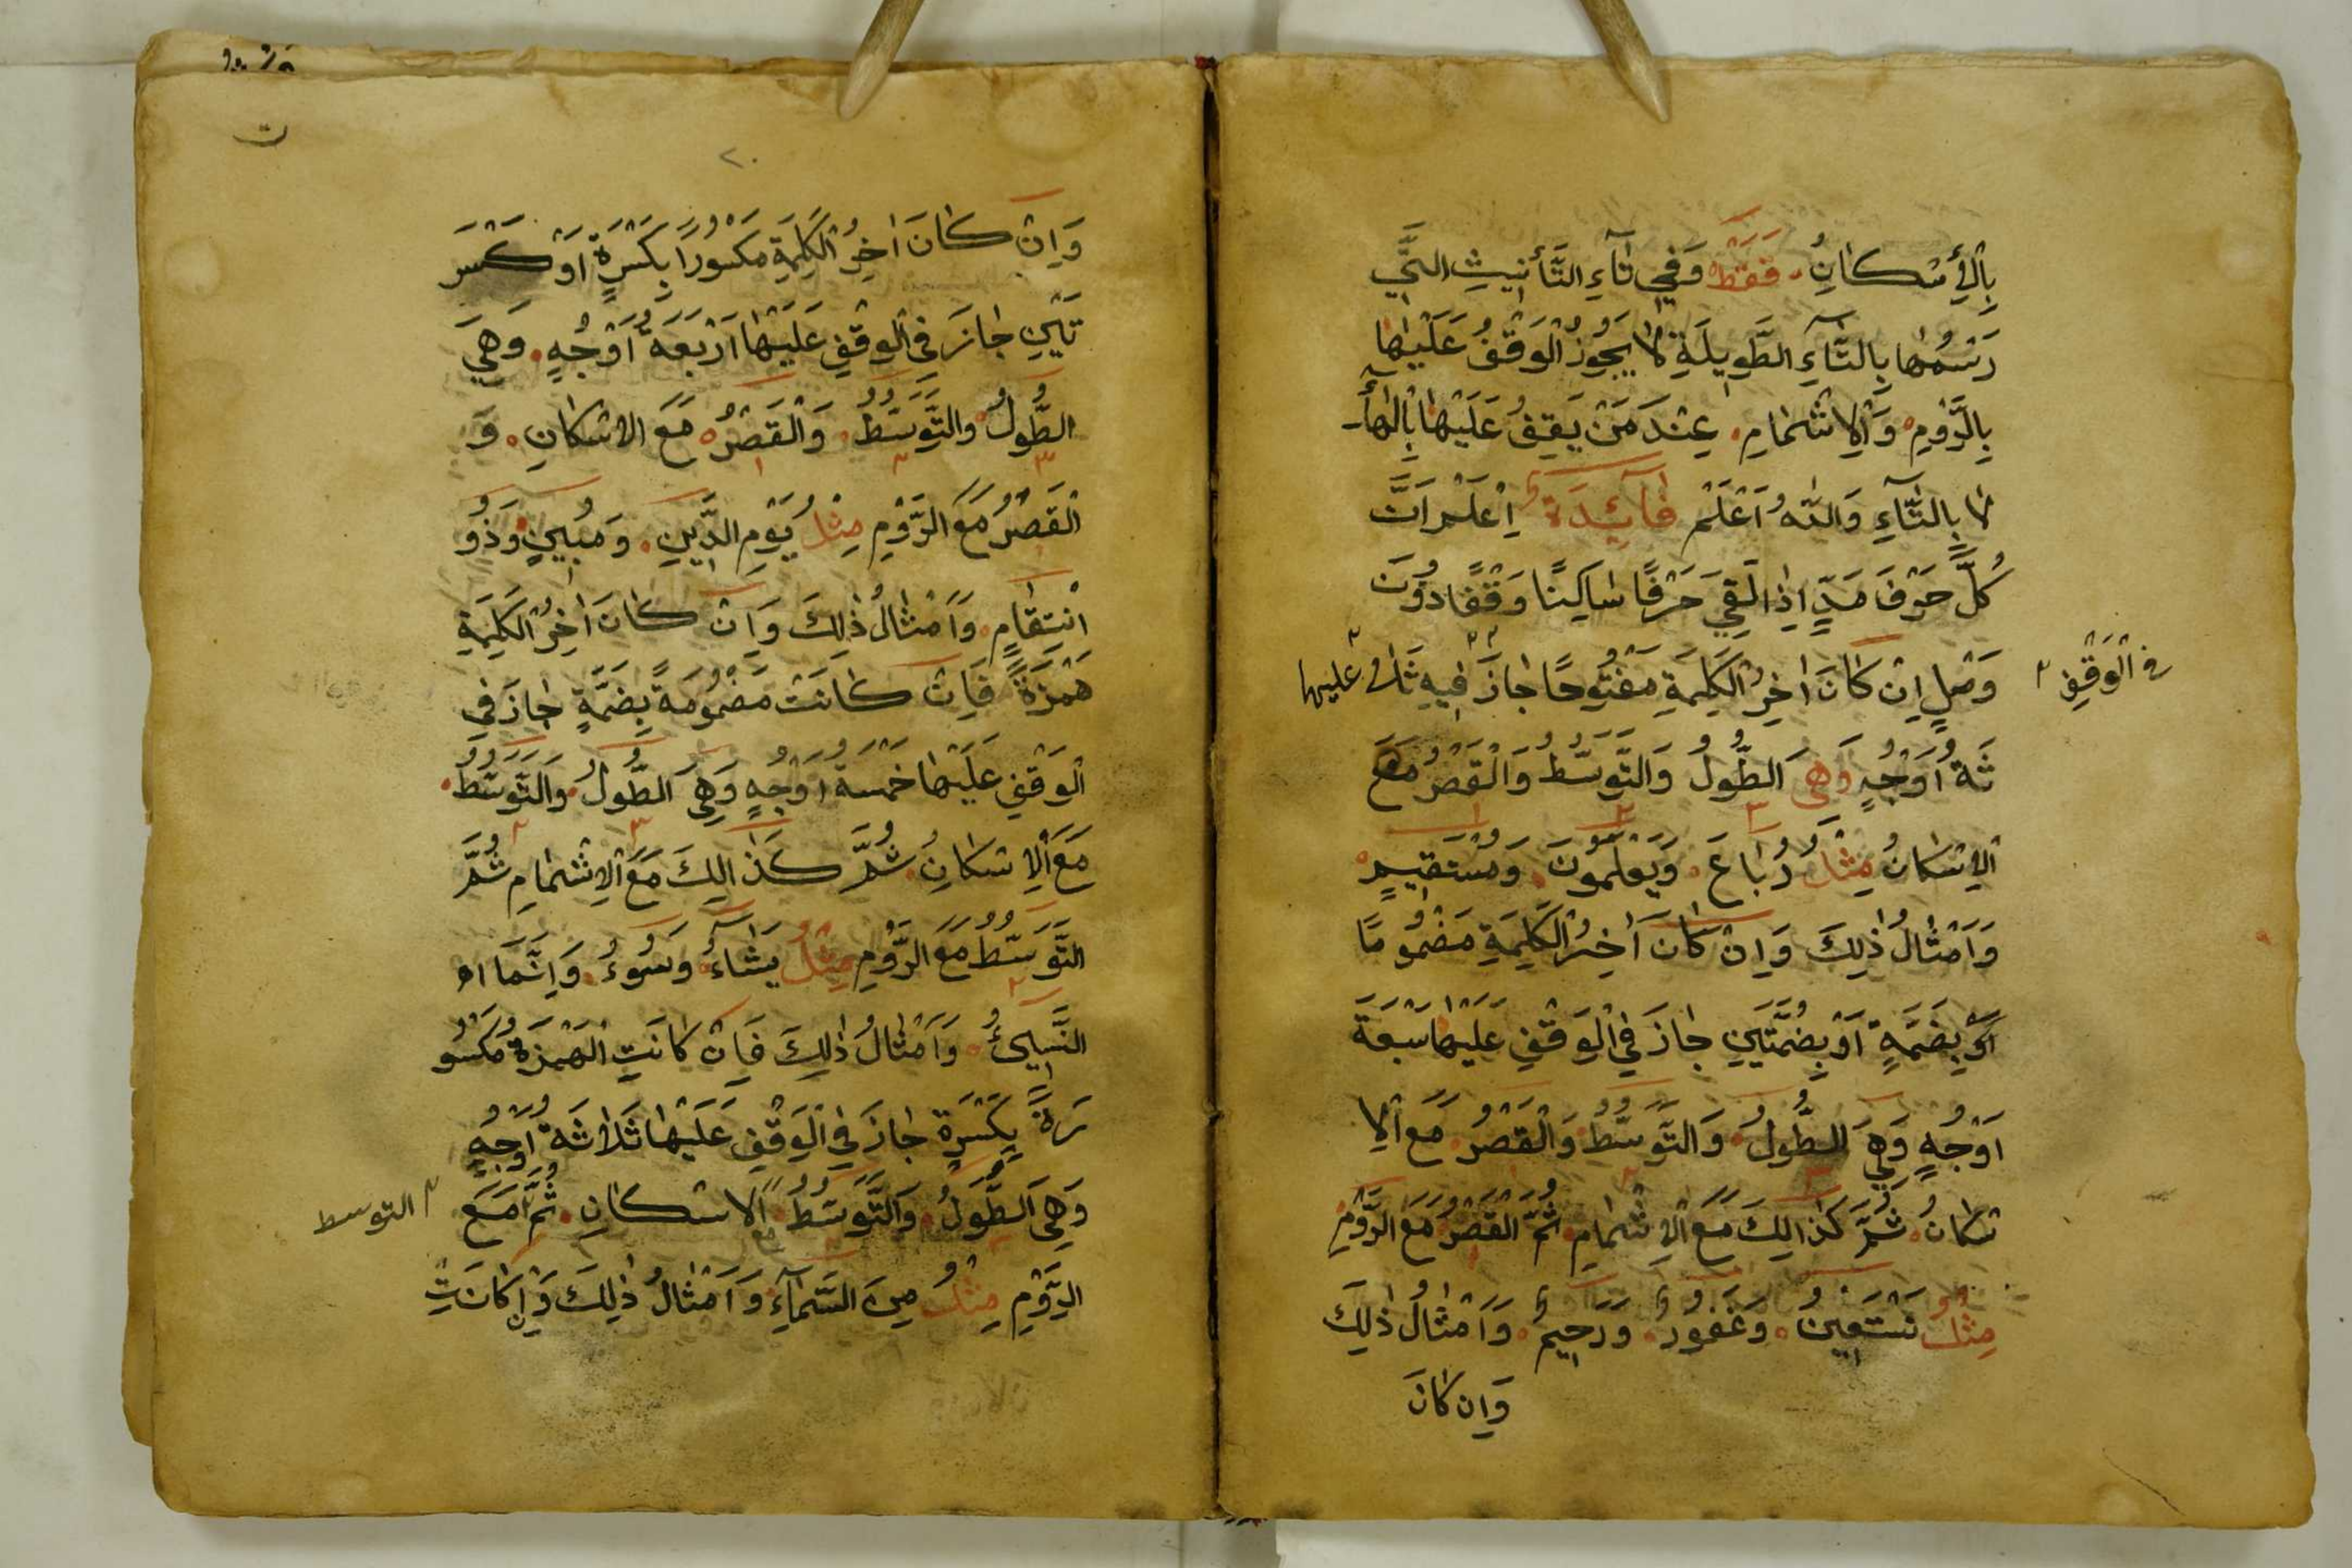 بِالْأِسْكَانِ فَقَطْ وَفِي تَاءِ التَّأْنِيثِ الَّتِي
رَسْمُهَا بِالتَّاءِ الطَّوِيلَةِ لَا يَجُوزُ الْوَقْفُ عَلَيْهَا
بِالرَّوْمِ وَالْاِشْمَامِ عِنْدَ مَنْ يَقِفُ عَلَيْهَا بِالْهَاءِ
لَا بِالتَّاءِ وَاللّٰهُ اَعْلَمْ فَائِدَةٌ اِعْلَمْ اَنَّ
كُلَّ حَرْفَ مَدٍّ اِذَا لَقِيَ حَرْفًا سَاكِنًا وَقْفًا دُونَ
وَصْلٍ اِنْ كَانَ اٰخِرُ الْكَلِمَةِ مَفْتُوحًا جَازَ فِيهِ ثَلٰ
فى الْوَقْفِ
عليها
ثَةُ اَوْجُهٍ وَهِيَ الطُّولُ وَالتَّوَسُّطُ وَالْقَصْرُ مَعَ
الْاِسْكَانُ مِثْلُ رُبَاعَ وَيَعْلَمُونَ وَمُسْتَقِيمٍ
وَاَمْثَالُ ذٰلِكَ وَاِنْ كَانَ اٰخِرُ الْكَلِمَةِ مَضْمُومًا
اَىْ بِضَمَّةٍ اَوْ بِضُمَّتَيْنِ جَازَ فِي الْوَقْفِ عَلَيْهَا سَبْعَةَ
اَوْجُهٍ وَهِيَ الطُّولُ وَالتَّوَسُّطُ وَالْقَصْرُ مَعَ الْاِ
سْكَانُ ثُمَّ كَذَالِكَ مَعَ الْاِشْمَامِ ثُمَّ الْقَصْرُ مَعَ الرَّوْمِ
مِثْلُ نَسْتَعِينُ وَغَفُورٌ وَرَحِيمٌ وَاَمْثَالُ ذٰلِكَ
وَاِنْ كَانَ
ت
٢٠
وَاِنْ كَانَ اٰخِرُ الْكَلِمَةِ مَكْسُورًا بِكَسْرَةٍ اَوْ كَسْرَ
تَيْنِ جَازَ فِي الْوَقْفِ عَلَيْهَا اَرْبَعَةُ اَوْجُهٍ وَهِيَ
الطُّولُ وَالتَّوَسُّطُ وَالْقَصْرُ مَعَ الْاِسْكَانِ وَ
الْقَصْرُ مَعَ الرَّوْمِ مِثْلُ يَوْمِ الدِّينِ وَمُبِينٍ وَذُو
انْتِقَامٍ وَاَمْثَالُ ذٰلِكَ وَاِنْ كَانَ اٰخِرُ الْكَلِمَةِ
هَمْزَةً فَاِنْ كَانَتْ مَضْمُومَةً بِضَمَّةٍ جَازَ فِي
الْوَقْفِ عَلَيْهَا خَمْسَةُ اَوْجُهٍ وَهِيَ الطُّولُ وَالتَّوَسُّطُ
مَعَ الْاِسْكَانِ ثُمَّ كَذَالِكَ مَعَ الْاِشْمَامِ ثُمَّ
التَّوَسُّطُ مَعَ الرَّوْمِ مِثْلُ يَشَاءُ وَسُوءُ وَاِنَّمَا
النَّسِيئُ وَاَمْثَالُ ذٰلِكَ فَاِنْ كَانَتِ الْهَمْزَةُ مَكْسُو
رَةً بِكَسْرَةٍ جَازَ فِي الْوَقْفِ عَلَيْهَا ثَلَاثَةُ اَوْجُهٍ
وَهِيَ الطُّولُ وَالتَّوَسُّطُ مع الْاِسْكَانِ ثُمَّ مَعَ
التوسط
الرَّوْمِ مِثْلُ مِنَ السَّمَاءِ وَاَمْثَالُ ذٰلِكَ وَاِنْ كَانَتِ